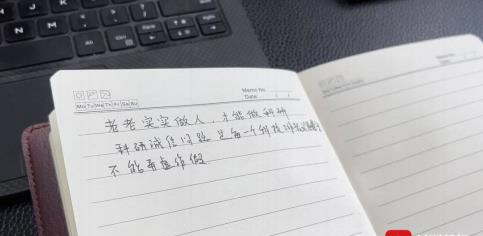 Memo No.
Mo Tu We Th Fr Sa Su
Date
老老实实做人，才能做科研
科研诚信问题是每一个科技
不能弄虚作假